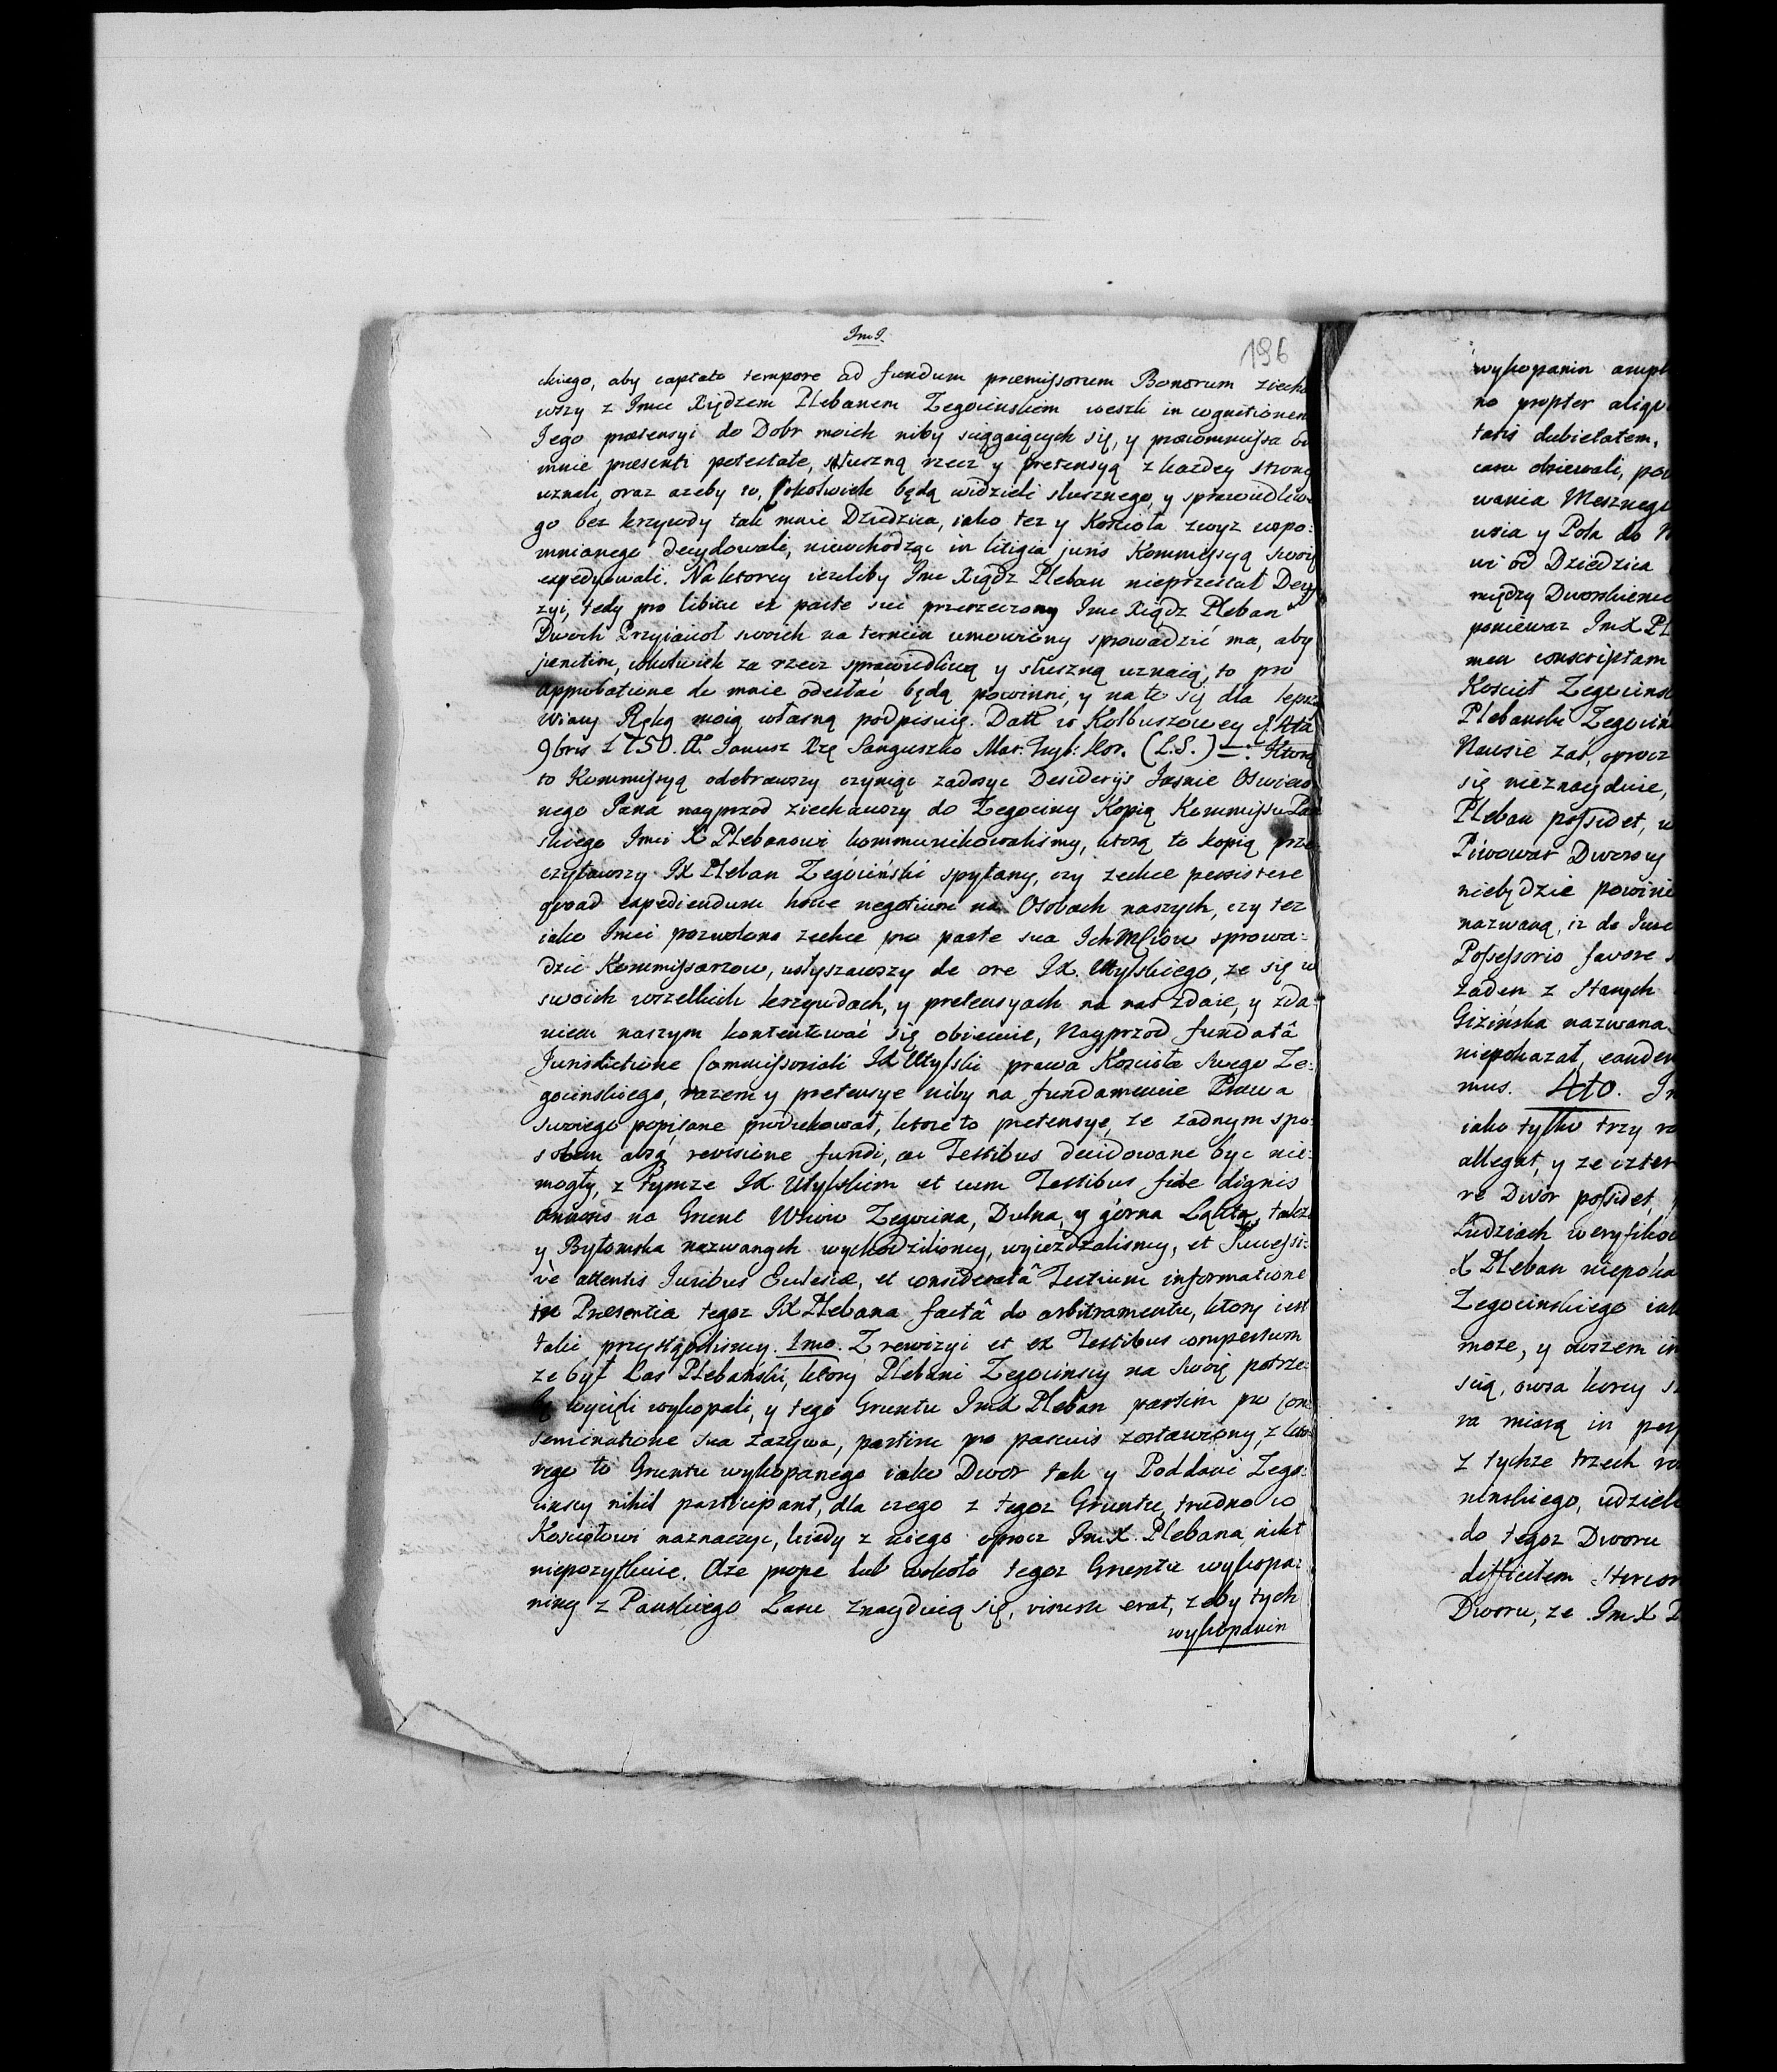 ImJ.
196
ckiego, aby captato tempore ad fundum praemissorum Bonorum ziecha
wszy z Imci Xiędzem Plebanem Zegocinskim weszli in cognitionem
Iego praetensyi do Dobr moich niby sciągaiących się, y
mnie praesenti potestate, słuszną rzecz y pretensyą z kazdey strony
uznali, oraz azeby to, cokolwiek będą widzieli słusznego, y sprawiedliwe
go bez krzywdy tak mnie Dziedzica, iako tez y Koscioła zwyz wspo:
mnianego decydowali, niewchodząc in litigia juris Kommissyą swoią
expedyowali. Na ktorey iezeliby Imc Xiądz Pleban nieprzestał Decy
zyi, tedy pro libitu ex parte sui przerzeczony Imc Xiądz Pleban
Dwoch Przyiacioł swoich na termin umowiony sprowadzić ma, aby
junctim, cokolwiek za rzecz sprawiedliwą y słuszną uznaią, to pro
approbatione do mnie odesłać będą powinni, y na to się dla lepsz
wiary Ręką moią własną podpisuię. Datt w Kolbuszowey d. 4ta
9bris 1750. Ao Ianusz Xżę Sanguszko Mar. Ko̅r. (L.S.) —:— Ktorą
to Kommissyą odebrawszy czyniąc zadosyc Desideriis Iasnie Oswieco
nego Pana nayprzod ziechawszy do Zegociny Kopią Kommissu Pań
skiego Imci X Plebanowi kommunikowalismy, ktorą to kopią prze
czytawszy IX Pleban Zegociński spytany, czy zechce persistere
quoad expediendum hocce negotium na Osobach naszych, czy tez
iako Imci pozwolono zechce pro parte sua Ich Mciow sprowa:
dzic Kommissarzow, usłyszawszy de ore IX. Utylskiego, ze się w
swoich wszelkich krzywdach, y pretensyach na nas zdaie, y zda:
niem naszym kontentować się obiecuie, Nayprzod fundatâ
Jurisdictione Commissoriali IX Utylski prawa Koscioła swego Ze:
gocinskiego, razem y pretensye niby na fundamencie Prawa
swoiego popisane produkował, ktore to pretensye, ze zadnym spo:
sobem absq revisione fundi, ac Testibus decidowane byc nie:
mogły, z tymze IX Utylskim et cum Testibus fide dignis
na Grunt Wsiow Zegocina, Dolna, y gorna Łąkta, takze
y Bytomska nazwanych wychodzilismy, wyiezdzalismy, et Successi:
ve attentis Iuribus Ecclesiae, et consideratâ Testium informatione
in Presentia tegoz IX Plebana factâ do arbitramentu, ktory iest
taki przystąpilismy. 1mo. Z rewizyi et ex Testibus compertum
ze był Las Plebański, ktory Plebani Zegocinscy na swoię potrze:
bę wycięli wykopali, y tego Gruntu ImX Pleban partim pro con
seminatione sua zazywa, partim pro pascuis zostawiony, z kto
rego to Gruntu wykopanego iako Dwor tak y Poddani Zego:
cinscy nihil participant, dla czego z tegoz Gruntu, trudno co
Kosciołowi naznaczyc, kiedy z niego oprocz ImX. Plebana, nikt
niepozytkuie. Aze prope lub wokoło tegoz Gruntu wykopa:
niny z Pańskiego Lasu znayduią się, visum erat, zeby tych
wykopanin
wykopanin
no propter aliqu
tatis dubietatem,
casu dziewali,
wania Mesznego
usia y Pola do
wi od Dziedzica
między Dworskiemi
poniewaz ImX Pl
men conscriptam
Kościół Zegocinsk
Plebanski Zegocin
Nawsie zas, oprocz
się nieznayduie,
Pleban possidet, u
Piwowar Dworsky
niebędzie powini
nazwaną, iz do
Possessorio favore
zaden z starych
Gizińska nazwana
niepokazał, eandem
mus. 4to. In
iako tylko trzy
allegat, y ze czter
re Dwor possidet,
Ludziach weryfikow
X Pleban niepoka
Zegocinskiego iak
moze, y owszem in
scią, owsa korcy
ra miarą in
z tychze trzech
ninskiego, udziel
do tegoz Dworu
difficilem
Dworu, ze ImX